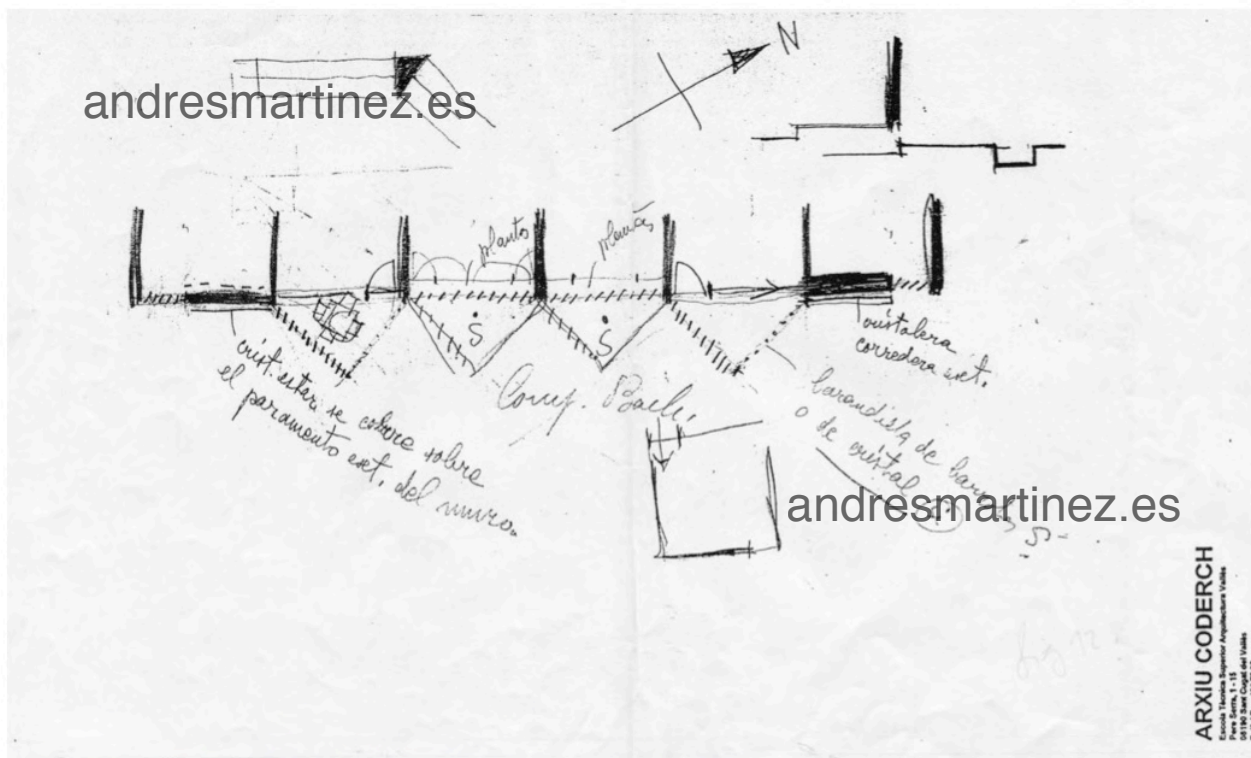 N
andresmartinez.es
planta
S
S
cristalera
corredera ext.
crist. estar se corre sobre
el paramento ext. del muro.
Comp.
barandilla de
o de cristal
S
andresmartinez.es
ARXIU CODERCH
Escola Tècnica Superior Arquitectura Vallès
Pere Serra, 1 - 15
08190 Sant Cugat del Vallès